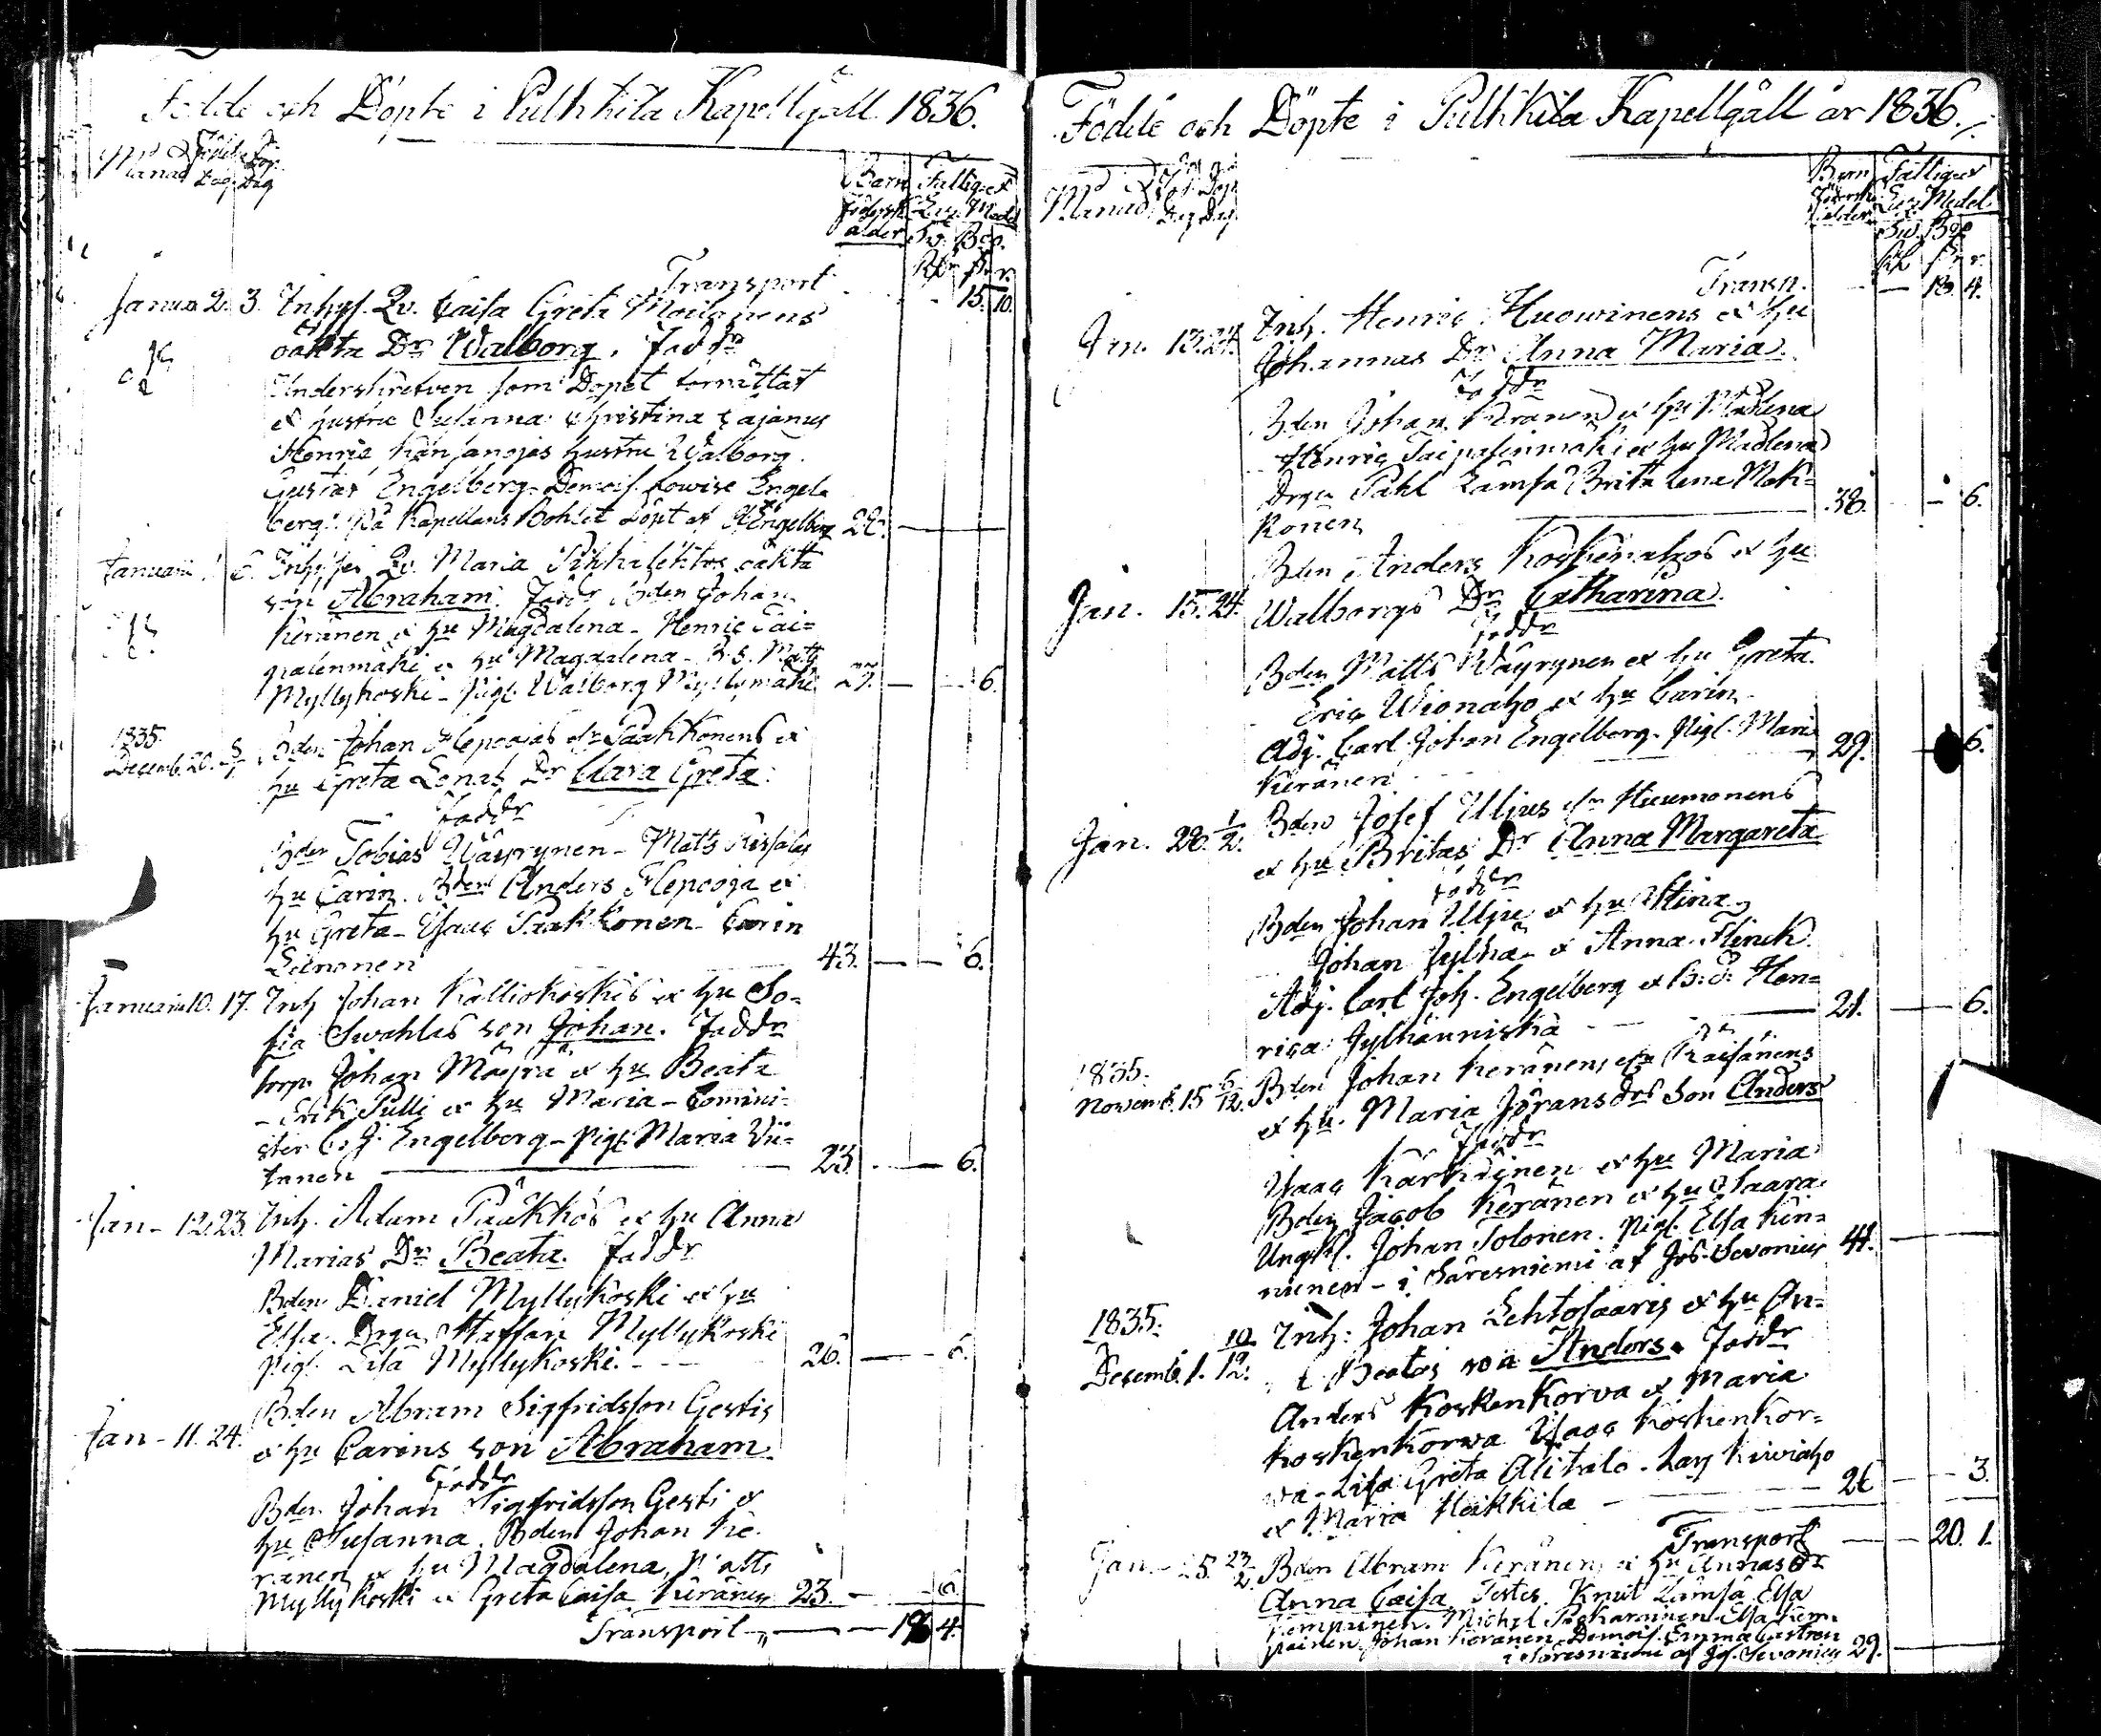 Födde och Döpte i Pulkkila Kapellgäll 1836.
Månad Födelse Dag Döp. Dag
Barn Fattiges
födersk. Ens. Medel
ålder Sv. Bco.
Rdr s. r.
Transport 15. 10.
Januari 2. 3. Inhys. Qv. Caisa Greta Moilanens
oäkta Dr Walborg. Faddr
Underskrefven som Dopet förrättat
et hustru Susanna Christina Cajanus
Henric Känsanojas hustru Walborg.
Gustaf Engelberg - Demois. Lowise Engel-
berg. På Kapellans Bohlet döpt af Engelberg 22.
Januari 6. Inhyses Qv. Maria Pikkulehtos oäkta
son Abraham. Faddr Bden Johan
Keränen et hu Magdalena - Henric Tai-
palenmäki et hu Magdalena - B.S. Matts
Myllykoski - Pigl. Walborg Myllymäki 27. 6.
1835.
Decemb. 20. 3/1 Bden Johan Hepoojas Paakkonens et
hu Greta Lenas Dr Clara Greta.
Faddr
Bden Tobias Wäyrynen - Matts
hu Carin. Bden Anders Hepooja et
hu Greta - Esaias Paakkonen - Carin
43. 6.
Januari 10. 17. Inh Johan Kalliokoskis et hu So-
fia Swahlas son Johan. Faddr
torp. Johan Mäyrä et hu Beata
- Erik Pulli et hu Maria - Comini-
ster C. J. Engelberg - Pigl. Maria Vii-
tanen 23. 6.
Jan - 12. 23. Inh. Adam Pääkkös et hu Anna
Marias Dr Beata. Faddr
Bden Daniel Myllykoski et hu
Elsa. Drgn Staffan Myllykoski
pigl. Lisa Myllykoski. 26. 6.
Jan - 11. 24. Bden Abram Sigfridsson Gestis
et hu Carins son Abraham
Faddr
Bden Johan Sigfridsson Gesti et
hu Susanna. Bden Johan Ke-
ränen et hu Magdalena, Matts
Myllykoski et Greta Caisa Keränen 23. 6.
Transport 18 4.
Födde och Döpte i Pulkkila Kapellgäll år 1836.
Månad Föd. Dag Döp. Dag
Barn Fattiges
föderskans ålder Ens. Medel
Sw. Bco
Rdr s. r.
Transp. 18. 4.
Jan. 13. 24. Inh. Henric Huowinens et hu
Johannas Dr Anna Maria.
Faddr
Bden Johan Keränen et hu Madlena
Henric Taipalenmäki et hu Madlena
Drgn Pahl Lämsä Brita Lena Mok-
konen 38. 6.
Jan. 15. 24. Bden Anders Koskenahos et hu
Walborgs Dr Catharina.
Faddr
Bden Matts Wäyrynen et hu Greta.
Eric Wionaho et hu Carin.
Adj. Carl Johan Engelberg. Pigl. Maria
Keränen 29. 6.
Jan. 28. 1/2. Bden Josef Uljus Huumonens
et hu Britas Dr Anna Margareta
Faddr
Bden Johan Uljus et hu Stina
Johan Jylhä et Anna Flinck
Adj. Carl Joh. Engelberg et B.D. Hen-
rica Jylhänniskä 21. 6.
1835.
Novemb. 15 6/12. Bden Johan Keränens Räisänens
et hu. Maria Jöransdrs Son Anders
Faddr
Isaac Kärkkäinen et hu Maria
Bden Jacob Keränen et hu Claara
Ungkl. Johan Tolonen. Pigl. Elsa Kin-
nunen - i Säresniemi af Jos. Sevonius 44.
1835.
Decemb. 1. 10/12. Inh: Johan Lehtosaaris et hu An-
Beatas son Anders. Faddr
Anders Koskenkorva et Maria
Koskenkorwa Isaac Koskenkor-
wa - Lisa Greta Alitalo - Lars Kiwiaho
et Maria Heikkilä 26 3.
Transport 20. 1.
Jan - 25. 23/2 Bden Abram Keränens et hu Annas Dr
Anna Caisa. Testes. Knut Lämsä Elsa
Kemppainen. Michel Elsa Kem-
painen. Johan Keränen. Demois. Emma Castren
i Säresniemi af Jos. Sevonius 29.